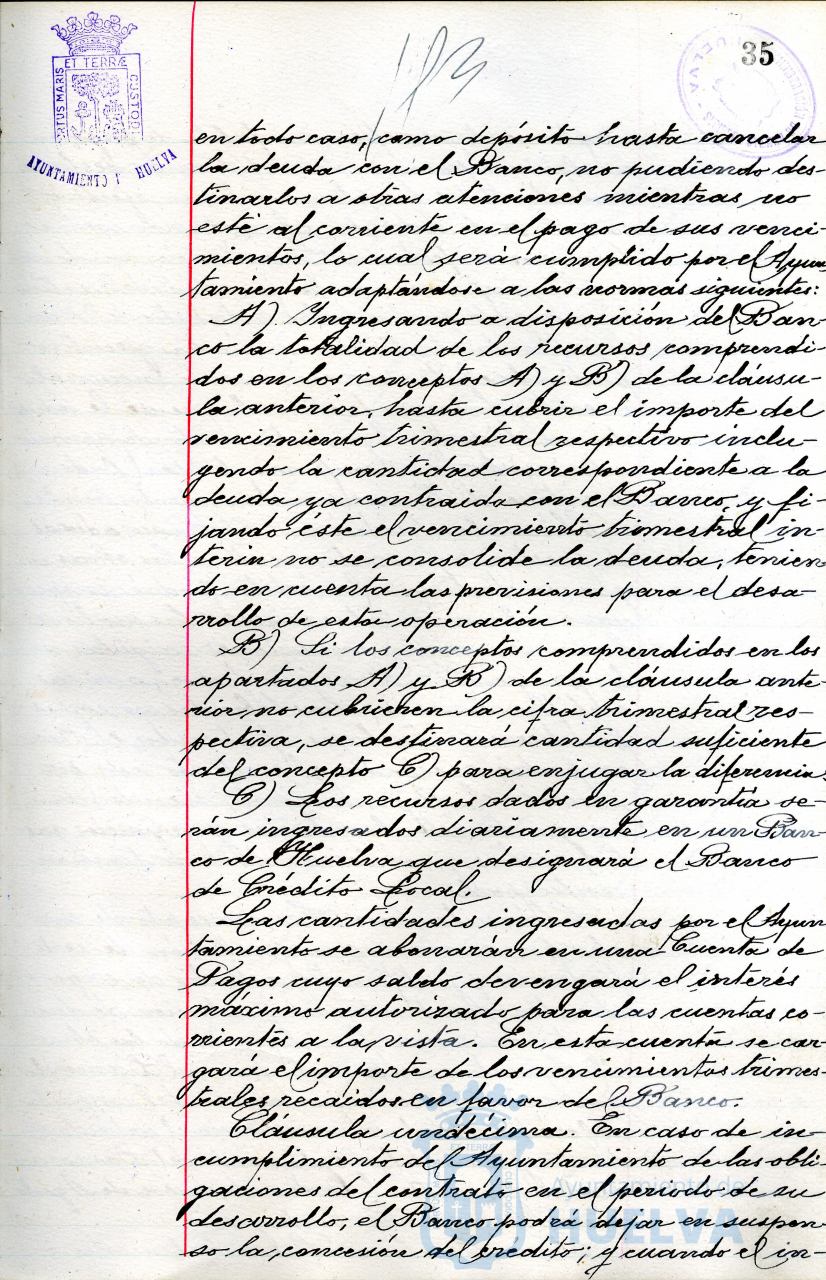 35
ET TERRÆ
CUSTODI
AYUNTAMIENTO D HUELVA
HUELVA
en todo caso, como depósito hasta cancelar
la deuda con el Banco, no pudiendo des-
tinarlos a otras atenciones mientras no
esté al corriente en el pago de sus venci-
mientos, lo cual será cumplido por el Ayun-
tamiento adaptándose a las normas siguientes:
A) Ingresando a disposición del Ban-
co la totalidad de los recursos comprendi-
dos en los conceptos A) y B) de la cláusu-
la anterior, hasta cubrir el importe del
vencimiento trimestral respectivo inclu-
yendo la cantidad correspondiente a la
deuda ya contraida con el Banco, y fi-
jando éste el vencimiento trimestral in-
terin no se consolide la deuda, tenien-
do en cuenta las previsiones para el desa-
rrollo de esta operación.
B) Si los conceptos comprendidos en los
apartados A) y B) de la cláusula ante-
rior no cubrieren la cifra trimestral res-
pectiva, se destinará cantidad suficiente
del concepto C) para enjugar la diferencia.
C) Los recursos dados en garantía se-
rán ingresados diariamente en un Ban-
co de Huelva que designará el Banco
de Crédito Local.
Las cantidades ingresadas por el Ayun
tamiento se abonarán en una Cuenta de
Pagos cuyo saldo devengará el interés
máximo autorizado para las cuentas co-
rrientes a la vista. En esta cuenta se car-
gará el importe de los vencimientos trimes-
trales recaidos en favor del Banco.
Cláusula undécima. En caso de in-
cumplimiento del Ayuntamiento de las obli-
gaciones del contrato en el periodo de su
desarrollo, el Banco podrá dejar en suspen-
so la concesión del crédito; y cuando el in-
Ayuntamiento de
HUELVA